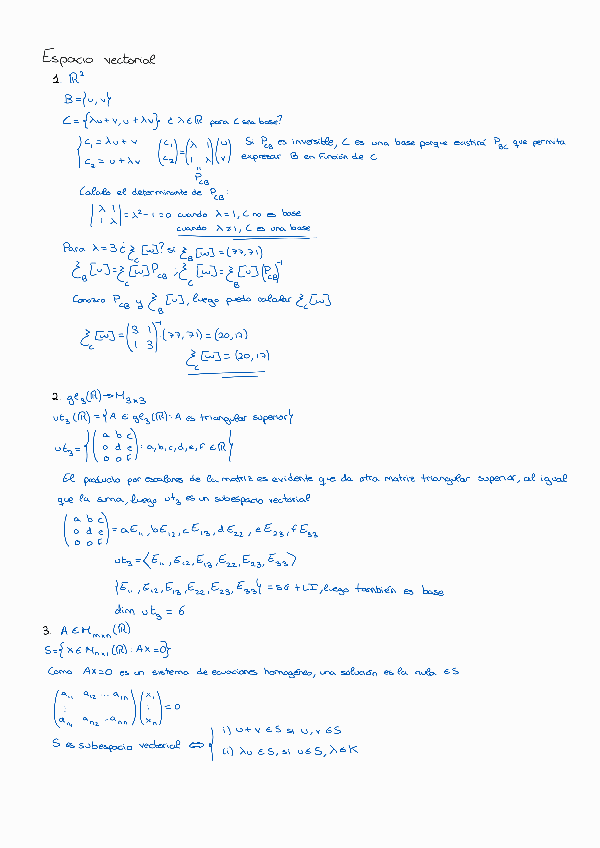 Espacio vectorial
1. ℝ²
B={u,v}
C={λu+v, u+λv} ¿λ∈ℝ para C sea base?
{ C₁=λu+v
C₂=u+λv
(C₁ C₂)=(λ 1 / 1 λ)(u v)
P_CB
Si P_CB es inversible, C es una base porque existirá P_BC que permita
expresar B en función de C
Calculo el determinante de P_CB:
|λ 1 / 1 λ|=λ²-1=0 cuando λ=1, C no es base
cuando λ≠1, C es una base
Para λ=3 ¿ξ_C[w]? si ξ_B[w]=(77,71)
ξ_B[u]=ξ_C[w]P_CB ; ξ_C[w]=ξ_B[u](P_CB)⁻¹
Conozco P_CB y ξ_B[u], luego puedo calcular ξ_C[w]
ξ_C[w]=(3 1 / 1 3)⁻¹(77,71)=(20,17)
ξ_C[w]=(20,17)
2. gl₃(ℝ)→M₃ₓ₃
ut₃(ℝ)={A∈gl₃(ℝ): A es triangular superior}
ut₃={(a b c / 0 d e / 0 0 F): a,b,c,d,e,F∈ℝ}
El producto por escalares de la matriz es evidente que da otra matriz triangular superior, al igual
que la suma, luego ut₃ es un subespacio vectorial
(a b c / 0 d e / 0 0 F)=aE₁₁, bE₁₂, cE₁₃, dE₂₂, eE₂₃, fE₃₃
ut₃=⟨E₁₁, E₁₂, E₁₃, E₂₂, E₂₃, E₃₃⟩
{E₁₁, E₁₂, E₁₃, E₂₂, E₂₃, E₃₃}=SG+LI, luego también es base
dim ut₃=6
3. A∈M_mxn(ℝ)
S={X∈M_nx1(ℝ): AX=0}
Como AX=0 es un sistema de ecuaciones homogéneo, una solución es la nula ∈S
(a₁₁ a₁₂ ... a₁n / : / an₁ an₂ ... ann)(x₁ : xn)=0
S es subespacio vectorial ⇔ { i) u+v∈S si u,v∈S
ii) λu∈S, si u∈S, λ∈K